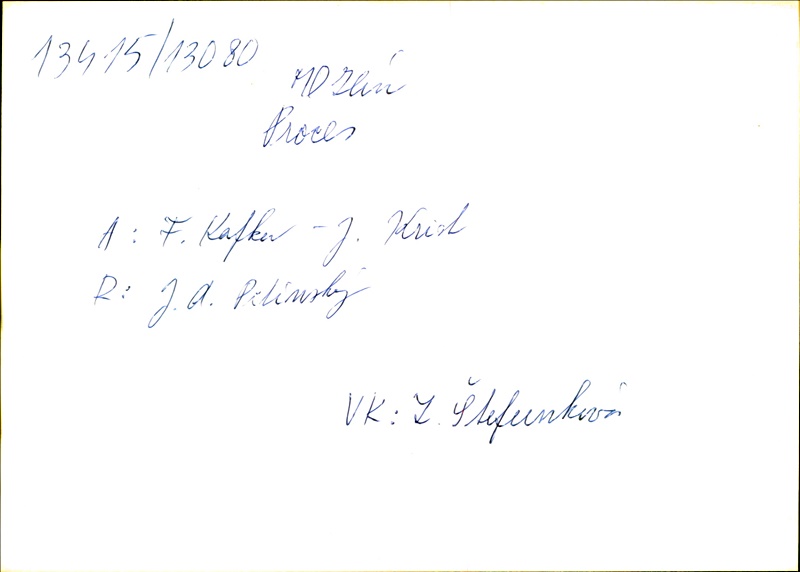 13415/13080
MD Zlín
Proces
A: F. Kafka - J. Krist
R: J. A. Pitínský
VK: Z. Štefunková